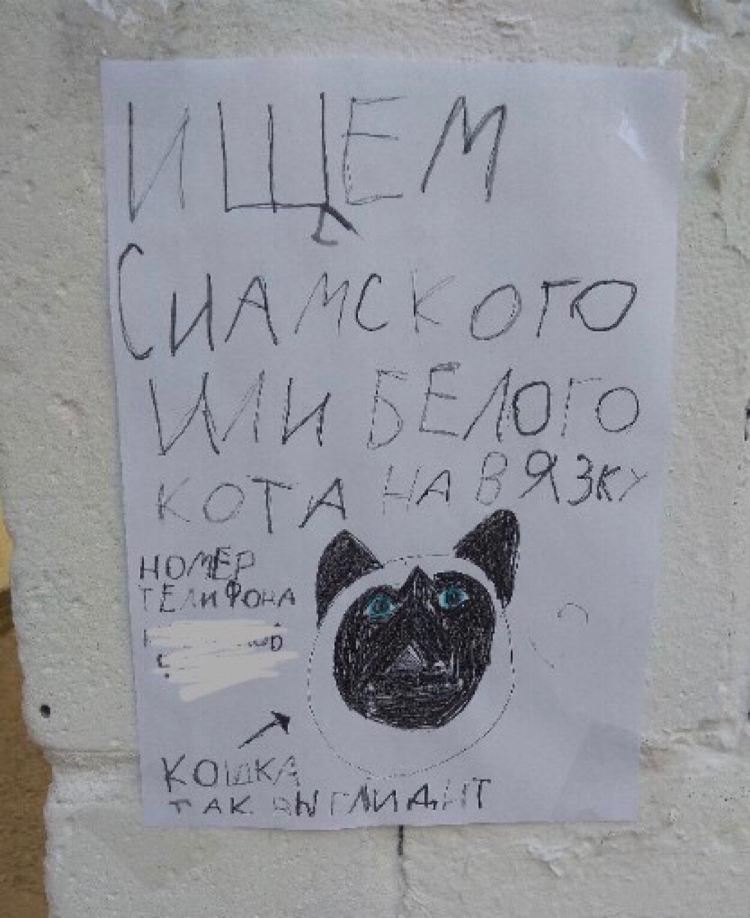 ИЩЕМ
СИАМСКОГО
ИЛИ БЕЛОГО
КОТА НА ВЯЗКУ
НОМЕР
ТЕЛИФОНА
КОШКА
ТАК ВЫГЛИДИТ